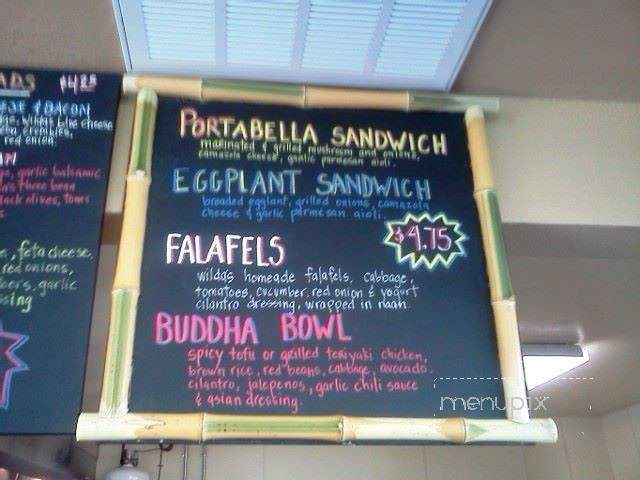 $4.25
& BACON
blue cheese
red onion.
garlic balsamic
three bean
black olives,
feta cheese,
red onions,
garlic
PORTABELLA SANDWICH
marinated & grilled mushroom and onions,
camazola cheese, garlic parmesan aioli.
EGGPLANT SANDWICH
breaded eggplant, grilled onions, camazola
cheese & garlic parmesan aioli.
$4.75
FALAFELS
wilda's homeade falafels, cabbage,
tomatoes, cucumber, red onion & yogurt
cilantro dressing, wrapped in naan.
BUDDHA BOWL
spicy tofu or grilled teriyaki chicken,
brown rice, red beans, cabbage, avocado.
cilantro, jalepenos, garlic chili sauce
& asian dressing.
menupix